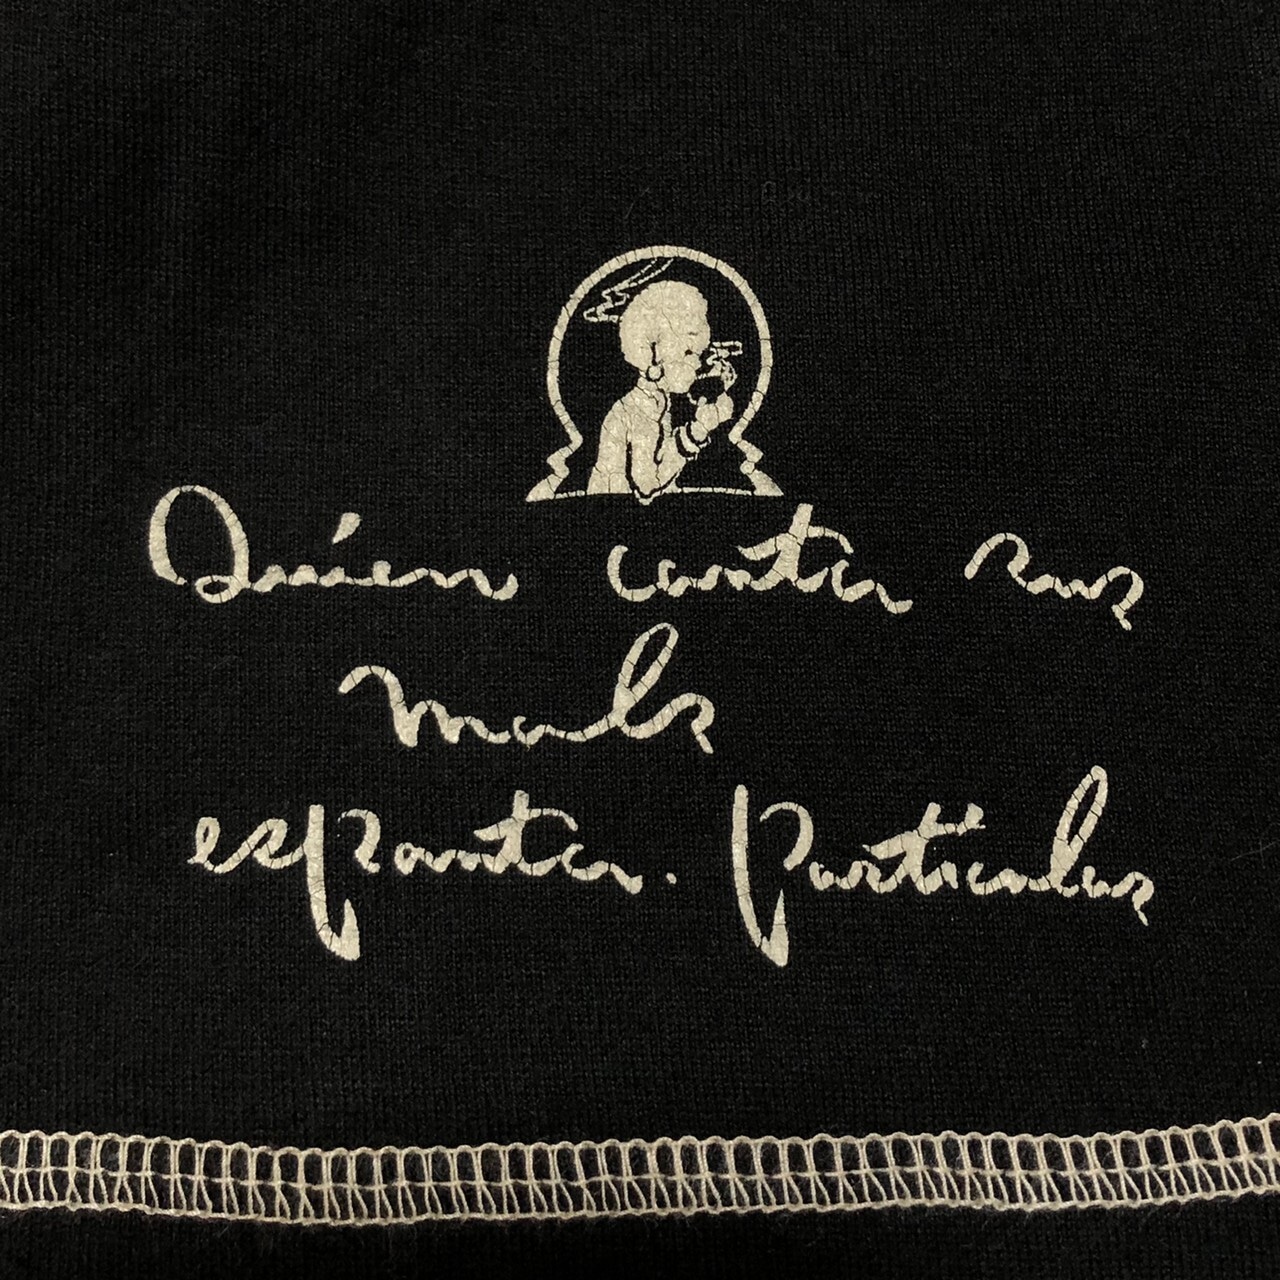 Quién canta sus
mals
espanta. Particular